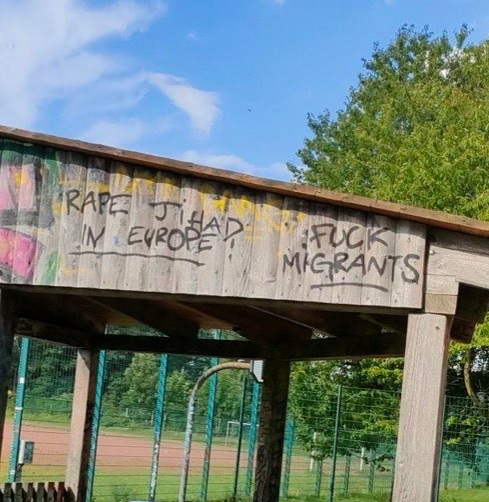 RAPE JIHAD
IN EUROPE
FUCK
MIGRANTS